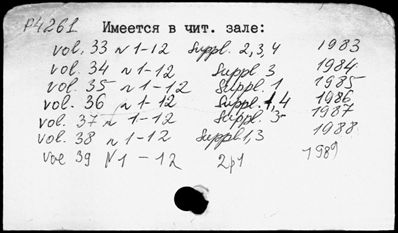 P4261 Имеется в чит. зале:
vol. 33 N 1-12 Suppl. 2,3,4 1983
vol. 34 N 1-12 Suppl 3 1984
vol. 35 N 1-12 Suppl. 1 1985
vol. 36 N 1-12 Suppl. 1,4 1986
vol. 37 N 1-12 Suppl. 3 1987
vol. 38 N 1-12 Suppl. 1,3 1988
vol 39 N1-12 2p1 1989